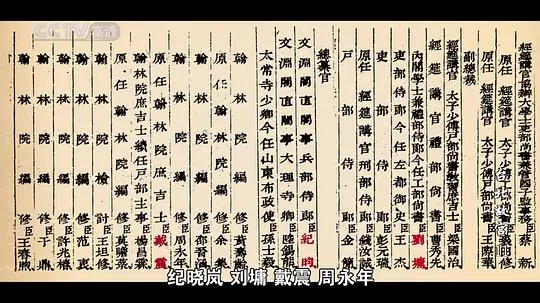 經筵講官協辦大學士吏部尚書兼管國子監事務臣蔡新
原任經筵講官太子少傅戶部尚書臣王際華
副總裁
經筵講官太子少傅戶部尚書教習庶吉士臣梁國治
經筵講官禮部尚書臣曹秀先
內閣學士兼禮部侍郎今任工部尚書臣劉墉
吏部侍郎今任左都御史臣王杰
吏部侍郎臣彭元瑞
原任經筵講官刑部侍郎臣錢汝誠
戶部侍郎臣金簡
總纂官
文淵閣直閣事兵部侍郎臣紀昀
文淵閣直閣事大理寺卿臣陸錫熊
太常寺少卿今任山東布政使臣孫士毅
翰林院編修臣黃壽齡
原任翰林院編修臣余集
翰林院編修臣邵晉涵
翰林院編修臣周永年
原任翰林院庶吉士臣戴震
翰林院庶吉士續任戶部主事臣楊昌霖
原任翰林院編修臣莫瞻菉
翰林院編修臣王坦修
翰林院檢討臣范衷
翰林院編修臣許兆椿
翰林院編修臣于鼎
翰林院編修臣王春煦
CCTV高清
纪晓岚 刘墉 戴震 周永年